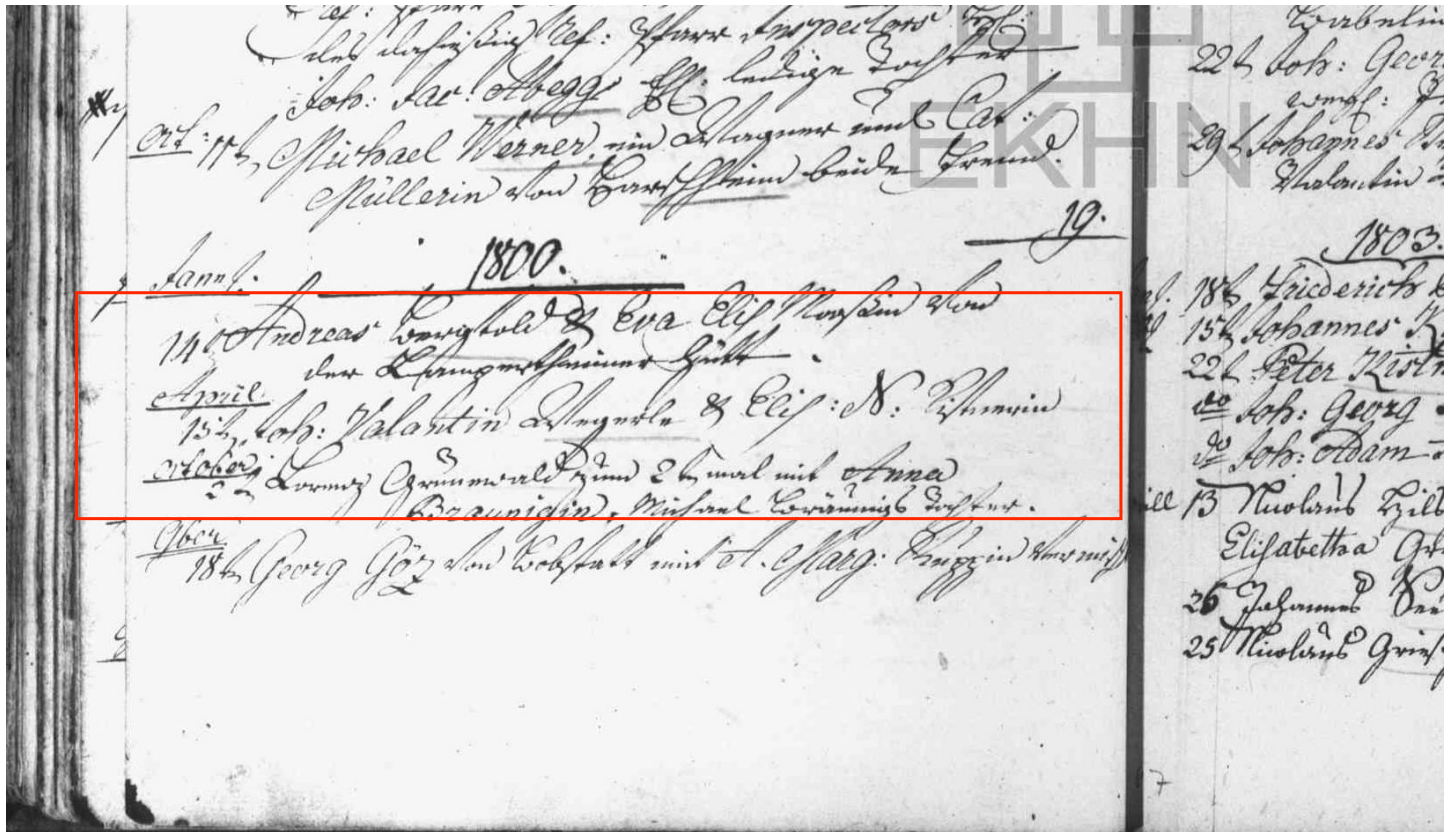 des dasigen Ref: Pfarr Inspectors
Joh: Jac: Abeggs Ehl: ledige Tochter
Oct: 11t Michael Werner, ein Wagner und Cat:
Müllerin von beide fremd.
19.
1800.
Jann:
14t Andreas Bergtold & Eva Elis von
der Lampertheimer Hütt.
April.
15t Joh: Valantin Wegerle & Elis: N:
October
2t Lorenz Grünewald zum 2t mal mit Anna
Bräunigin, Michael Bräunigs Tochter.
9ber
18t Georg Göz von Bobstatt mit A. Marg:
EKHN
22t Joh: Geor
29t Johannes
Valantin
1803.
18t Friederich
15t Johannes K
22t Peter
do Joh: Georg
do Joh: Adam
13 Nicolaus
Elisabetha
26 Johannes
25 Nicolaus